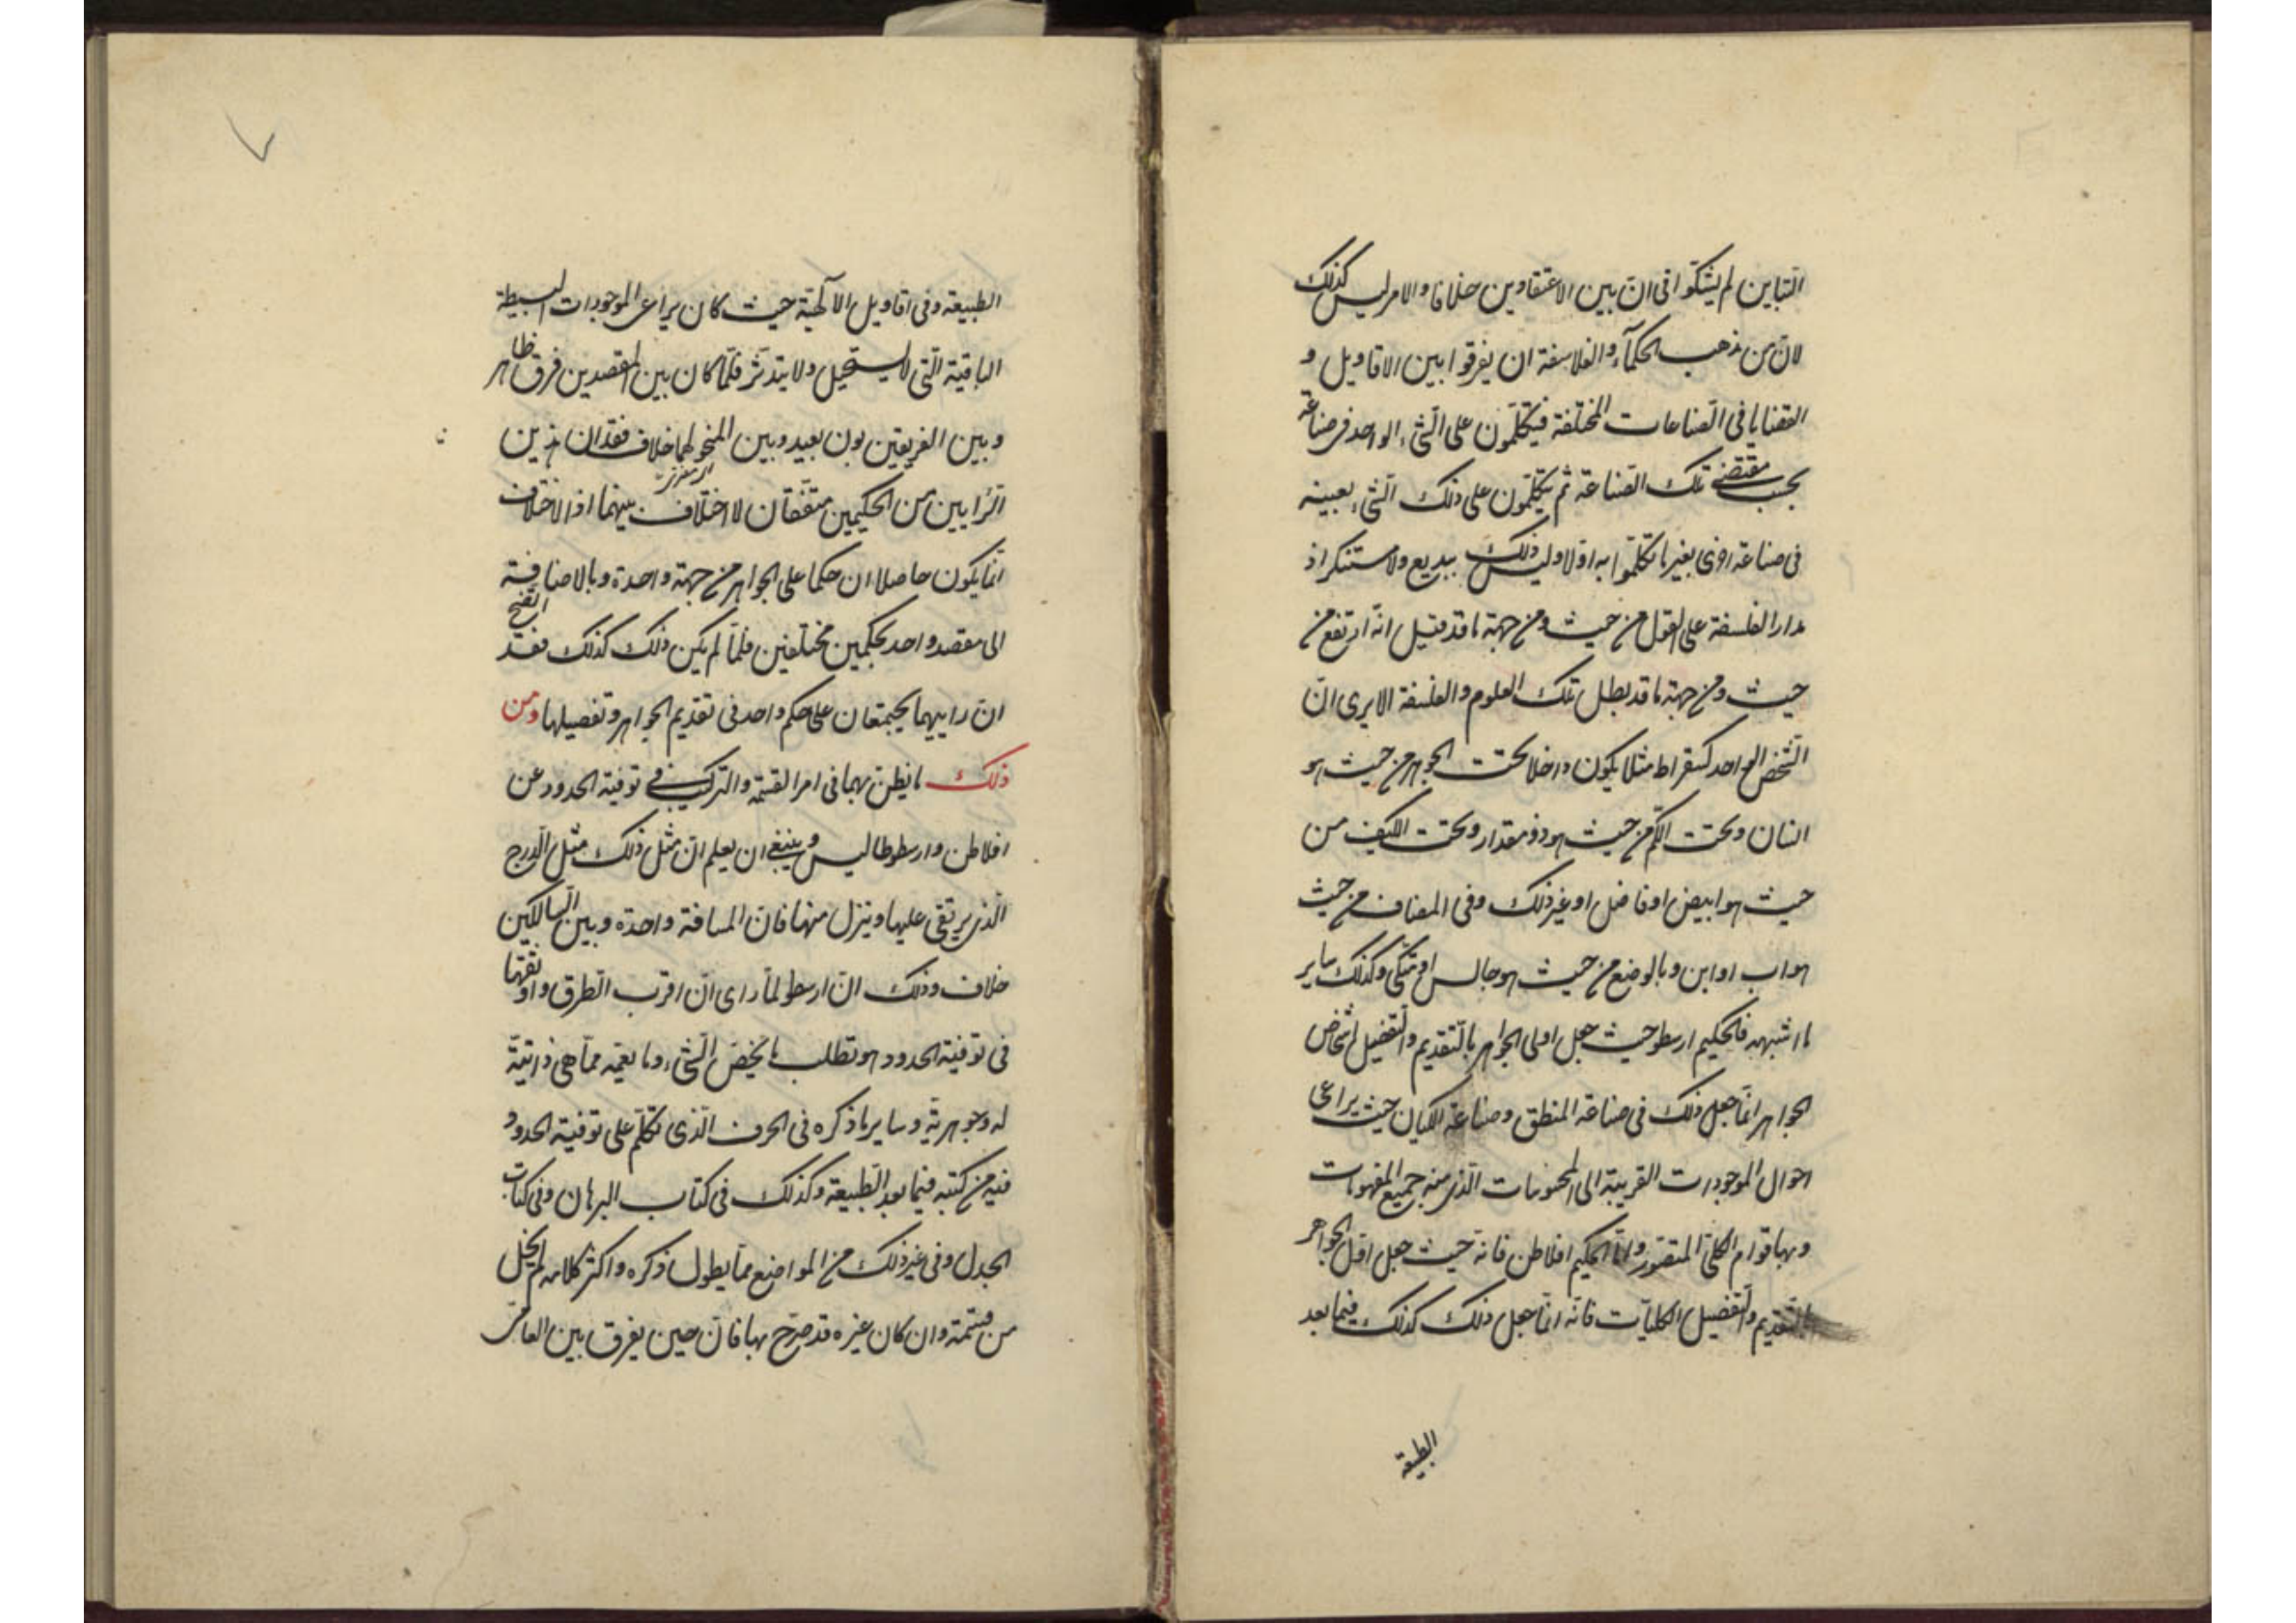 التباين لم يشكّوا فى انّ بين الاعتقادين خلافا والامر ليس كذلك
لانّ من مذهب الحكمآء والفلاسفة ان يفرقوا بين الاقاويل و
القضايا فى الصّناعات المختلفة فيتكلّمون على الشّىء الواحد فى صناعة
بحسب مقتضى تلك الصّناعة ثم يتكلّمون على ذلك الشّىء بعينه
فى صناعة اخرى بغير ما تكلّموا به اوّلا وليس ذلك ببديع ولا مستنكر اذ
مدار الفلسفة على القول من حيث ومن جهة ما قد قيل انّه ارتفع من
حيث ومن جهة ما قد بطل تلك العلوم والفلسفة الا يرى انّ
الشّخص الواحد كسقراط مثلا يكون داخلا تحت الجوهر من حيث هو
انسان وتحت الكمّ من حيث هو ذو مقدار وتحت الكيف من
حيث هو ابيض او فاضل او غير ذلك وفى المضاف من حيث
هو اب او ابن وبالوضع من حيث هو جالس او متكى وكذلك ساير
ما اشبهه فالحكيم ارسطو حيث جعل اولى الجواهر بالتّقديم والتّفضيل اشخاص
الجواهر انّما جعل ذلك فى صناعة المنطق وصناعة الكيان حيث يراعى
احوال الموجودات القريبة الى المحسوسات الذى منه جميع المفهومات
وبها قوام الكلىّ المتصّور وامّا الحكيم افلاطن فانّه حيث جعل اوّل الجواهر
بالتّقديم والتّفضيل الكليّات فانّه انّما جعل ذلك كذلك فيما بعد
الطبيعة
الطبيعة وفى اقاويل الالٓهيّة حيث كان يراعى الموجودات البسيطة
الباقية الّتى لا يستحيل ولا يتدثّر فلمّا كان بين المقصدين فرق ظاهر
وبين الفريقين بون بعيد وبين المنحو لهما خلاف فقد ان هذين
الرّايين من الحكيمين متّفقان لا اختلاف بينهما اذ الاختلاف
انّما يكون حاصلا ان حكما على الجواهر من جهة واحدة وبالاضافة
الى مقصد واحد بحكمين مختلفين فلمّا لم يكن ذلك كذلك فقد اتّضح
انّ راييهما يجتمعان على حكم واحد فى تقديم الجواهر وتفضيلها ومن
ذلك ما يظنّ بهما فى امر القسمة والتركيب فى توفية الحدود عن
افلاطن وارسطوطاليس وينبغى ان يعلم انّ مثل ذلك مثل الدّرج
الّذى يرتقى عليها وينزل منها فانّ المسافة واحدة وبين السّالكين
خلاف وذلك انّ ارسطو لمّا راى انّ اقرب الطّرق واوثقها
فى توفية الحدود هو تطلب ما يخصّ الشّىء وما يعمّه ممّا هى ذاتيّة
له وجوهريّة وساير ما ذكره فى الحرف الّذى تكلّم على توفية الحدود
فيه من كتبه فيما بعد الطّبيعة وكذلك فى كتاب البرهان وفى كتاب
الجدل وفى غير ذلك من المواضع ممّا يطول ذكره واكثر كلامه لم يخل
من قسمة وان كان غيره قد صرّح بها فانّ حين يفرق بين العامّى